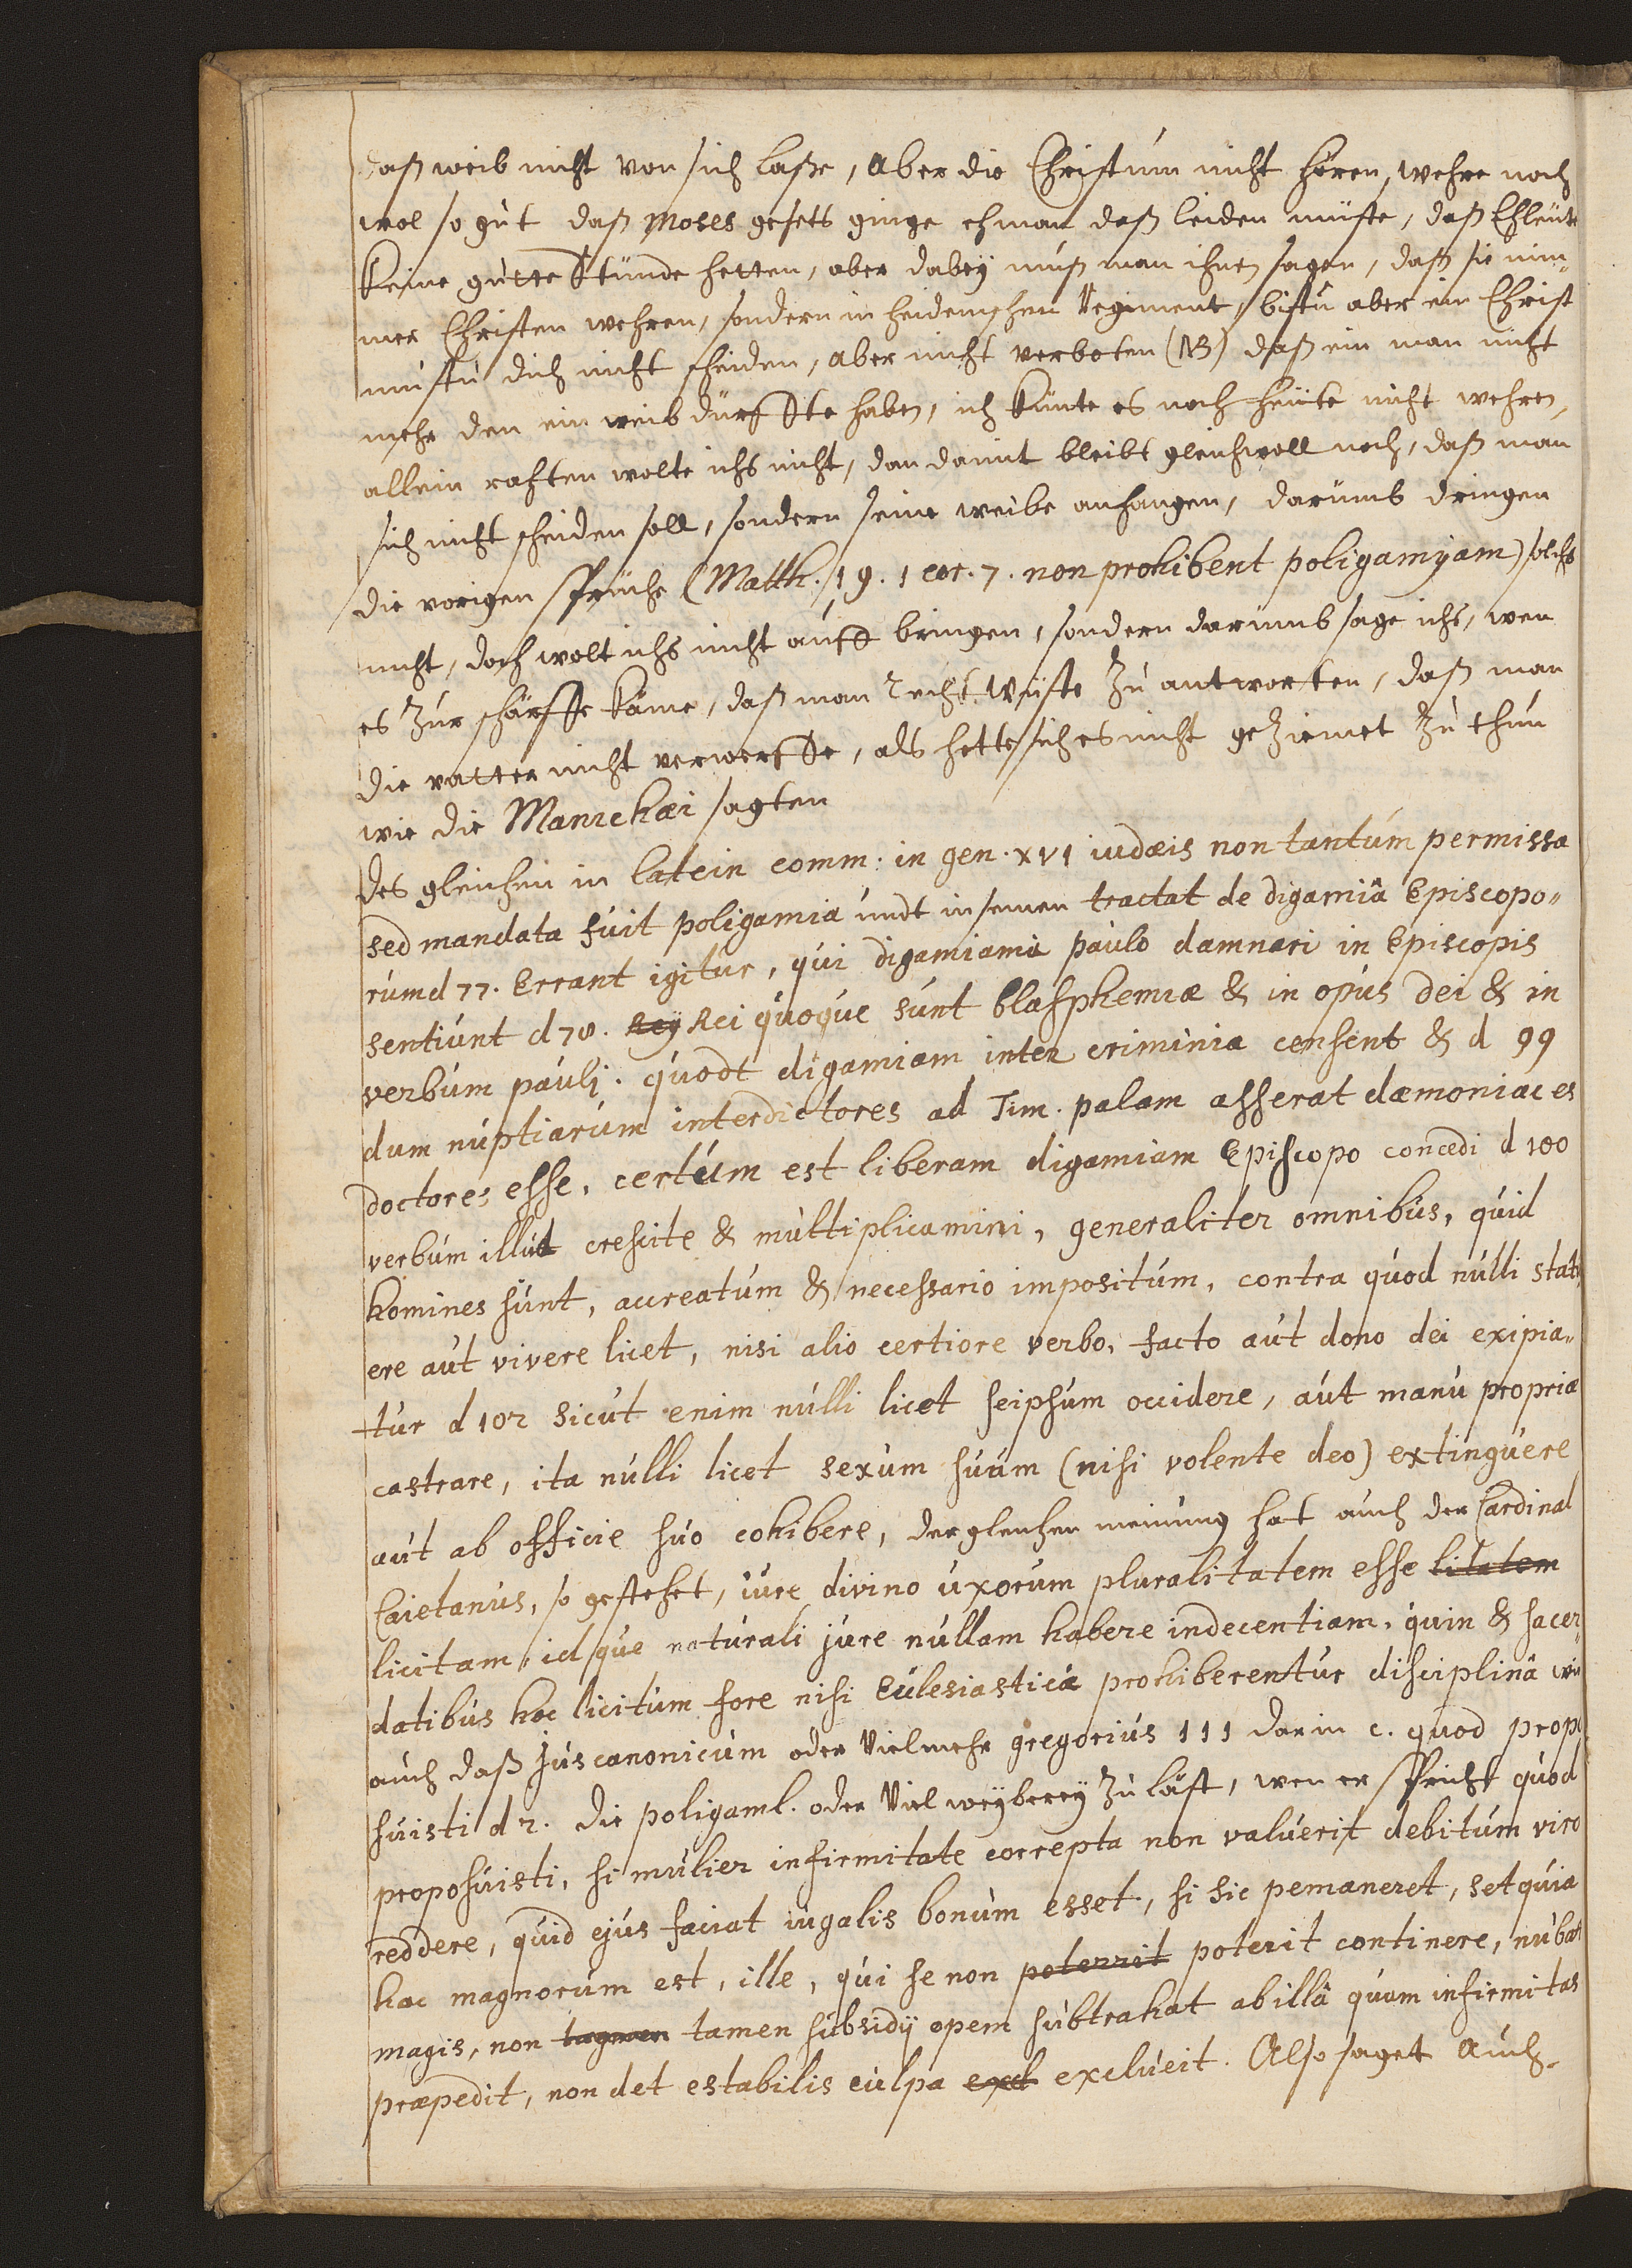 daß weib nicht von sich laße, aber die Christum nicht hören, wehre noch
wol so gut daß Moses gesetz ginge eh man daß leiden müste, daß Ehleute
keine gutte Stunde hetten, aber dabey muß man ihnen sagen, daß sie nim„
mer Christen wehren, sondern in heidenischen Regiment, bistu aber ein Christ
mustu dich nicht scheiden, aber nicht verboten (NB) daß ein man nicht
mehr den ein weib dürffte haben, ich künte es noch heüte nicht wehren,
allein rahten wolte ichs nicht, dan damit bleibt gleichwoll noch, daß man
sich nicht scheiden soll, sondern seine weibe anhangen, darumb dringen
die vorigen sprüche (Matth. 19. 1 cor. 7. non prohibent poligamyam) solchs
nicht, doch wolt ichs nicht auff bringen, sondern darumb sage ichs, wen
es zur schärffe käme, daß man recht wüste zu antworten, daß man
die vatter nicht verwerffe, als hette sich es nicht geziemet zu thun
wie die Manichæi sagten
des gleichen in latein comm: in gen. xvi iudæis non tantum permissa
sed mandata fuit poligamia undt in seinen tractat de digamiâ Episcopo„
rum d 77. Errant igitur, qui digamiam à paulo damnari in Episcopis
sentiunt d 78. Rey Rei quoque sunt blasphemiæ & in opus Dei & in
verbum pauli. quodt digamiam inter criminia censent & d 99
dum nuptiarum interdictores ad Tim. palam asserat dæmoniaces
doctores esse, certum est liberam digamiam Episcopo concedi d 100
verbum illut crescite & multiplicamini, generaliter omnibus, quid
homines sunt, accreatum & necessario impositum, contra quod nulli statu
ere aut vivere licet, nisi alio certiore verbo, facto aut dono dei exipia„
tur d 102 sicut enim nulli licet seipsum occidere, aut manu propriæ
castrare, ita nulli licet sexum suum (nisi volente deo) extinguere
aut ab officie suo cohibere, dergleichen meinung hat auch der Cardinal
Caietanus, so gestehet, iure divino uxorum pluralitatem esse litatem
licitam, id que naturali jure nullam habere indecentiam, quin & sacer„
datibus hoc licitum fore nisi Eclesiasticâ prohiberentur disciplinâ wie
auch daß Jus canonicum oder Vielmehr gregorius 111 dar in c. quod propo
suisti d 2. die poligaml. oder Viel weyberey zu läst, wen er spricht quod
proposuisti, si mulier infirmitate correpta non valuerit debitum viro
reddere, quid ejus faciat iugalis bonum esset, si sic pemaneret, set quia
hoc magnorum est, ille, qui se non poterrit poterit continere, nubat
magis, non tagmen tamen subsidÿ opem subtrahat ab illâ quam infirmitas
præpedit, non det estabilis culpa excl exclueit. Also saget auch